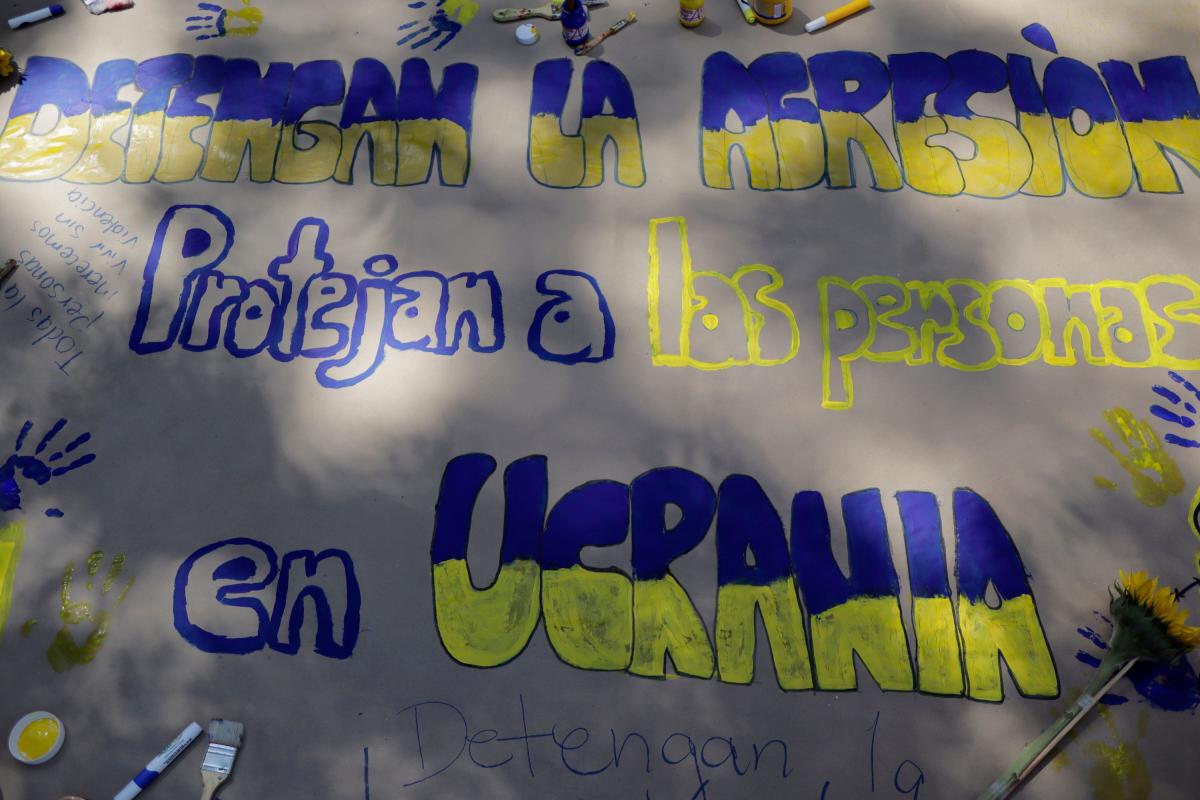 DETENGAN LA AGRESIÒN
Protejan a las personas
en UCRANIA
¡Detengan la
Todas la
personas
merecemos
vivir sin
violencia